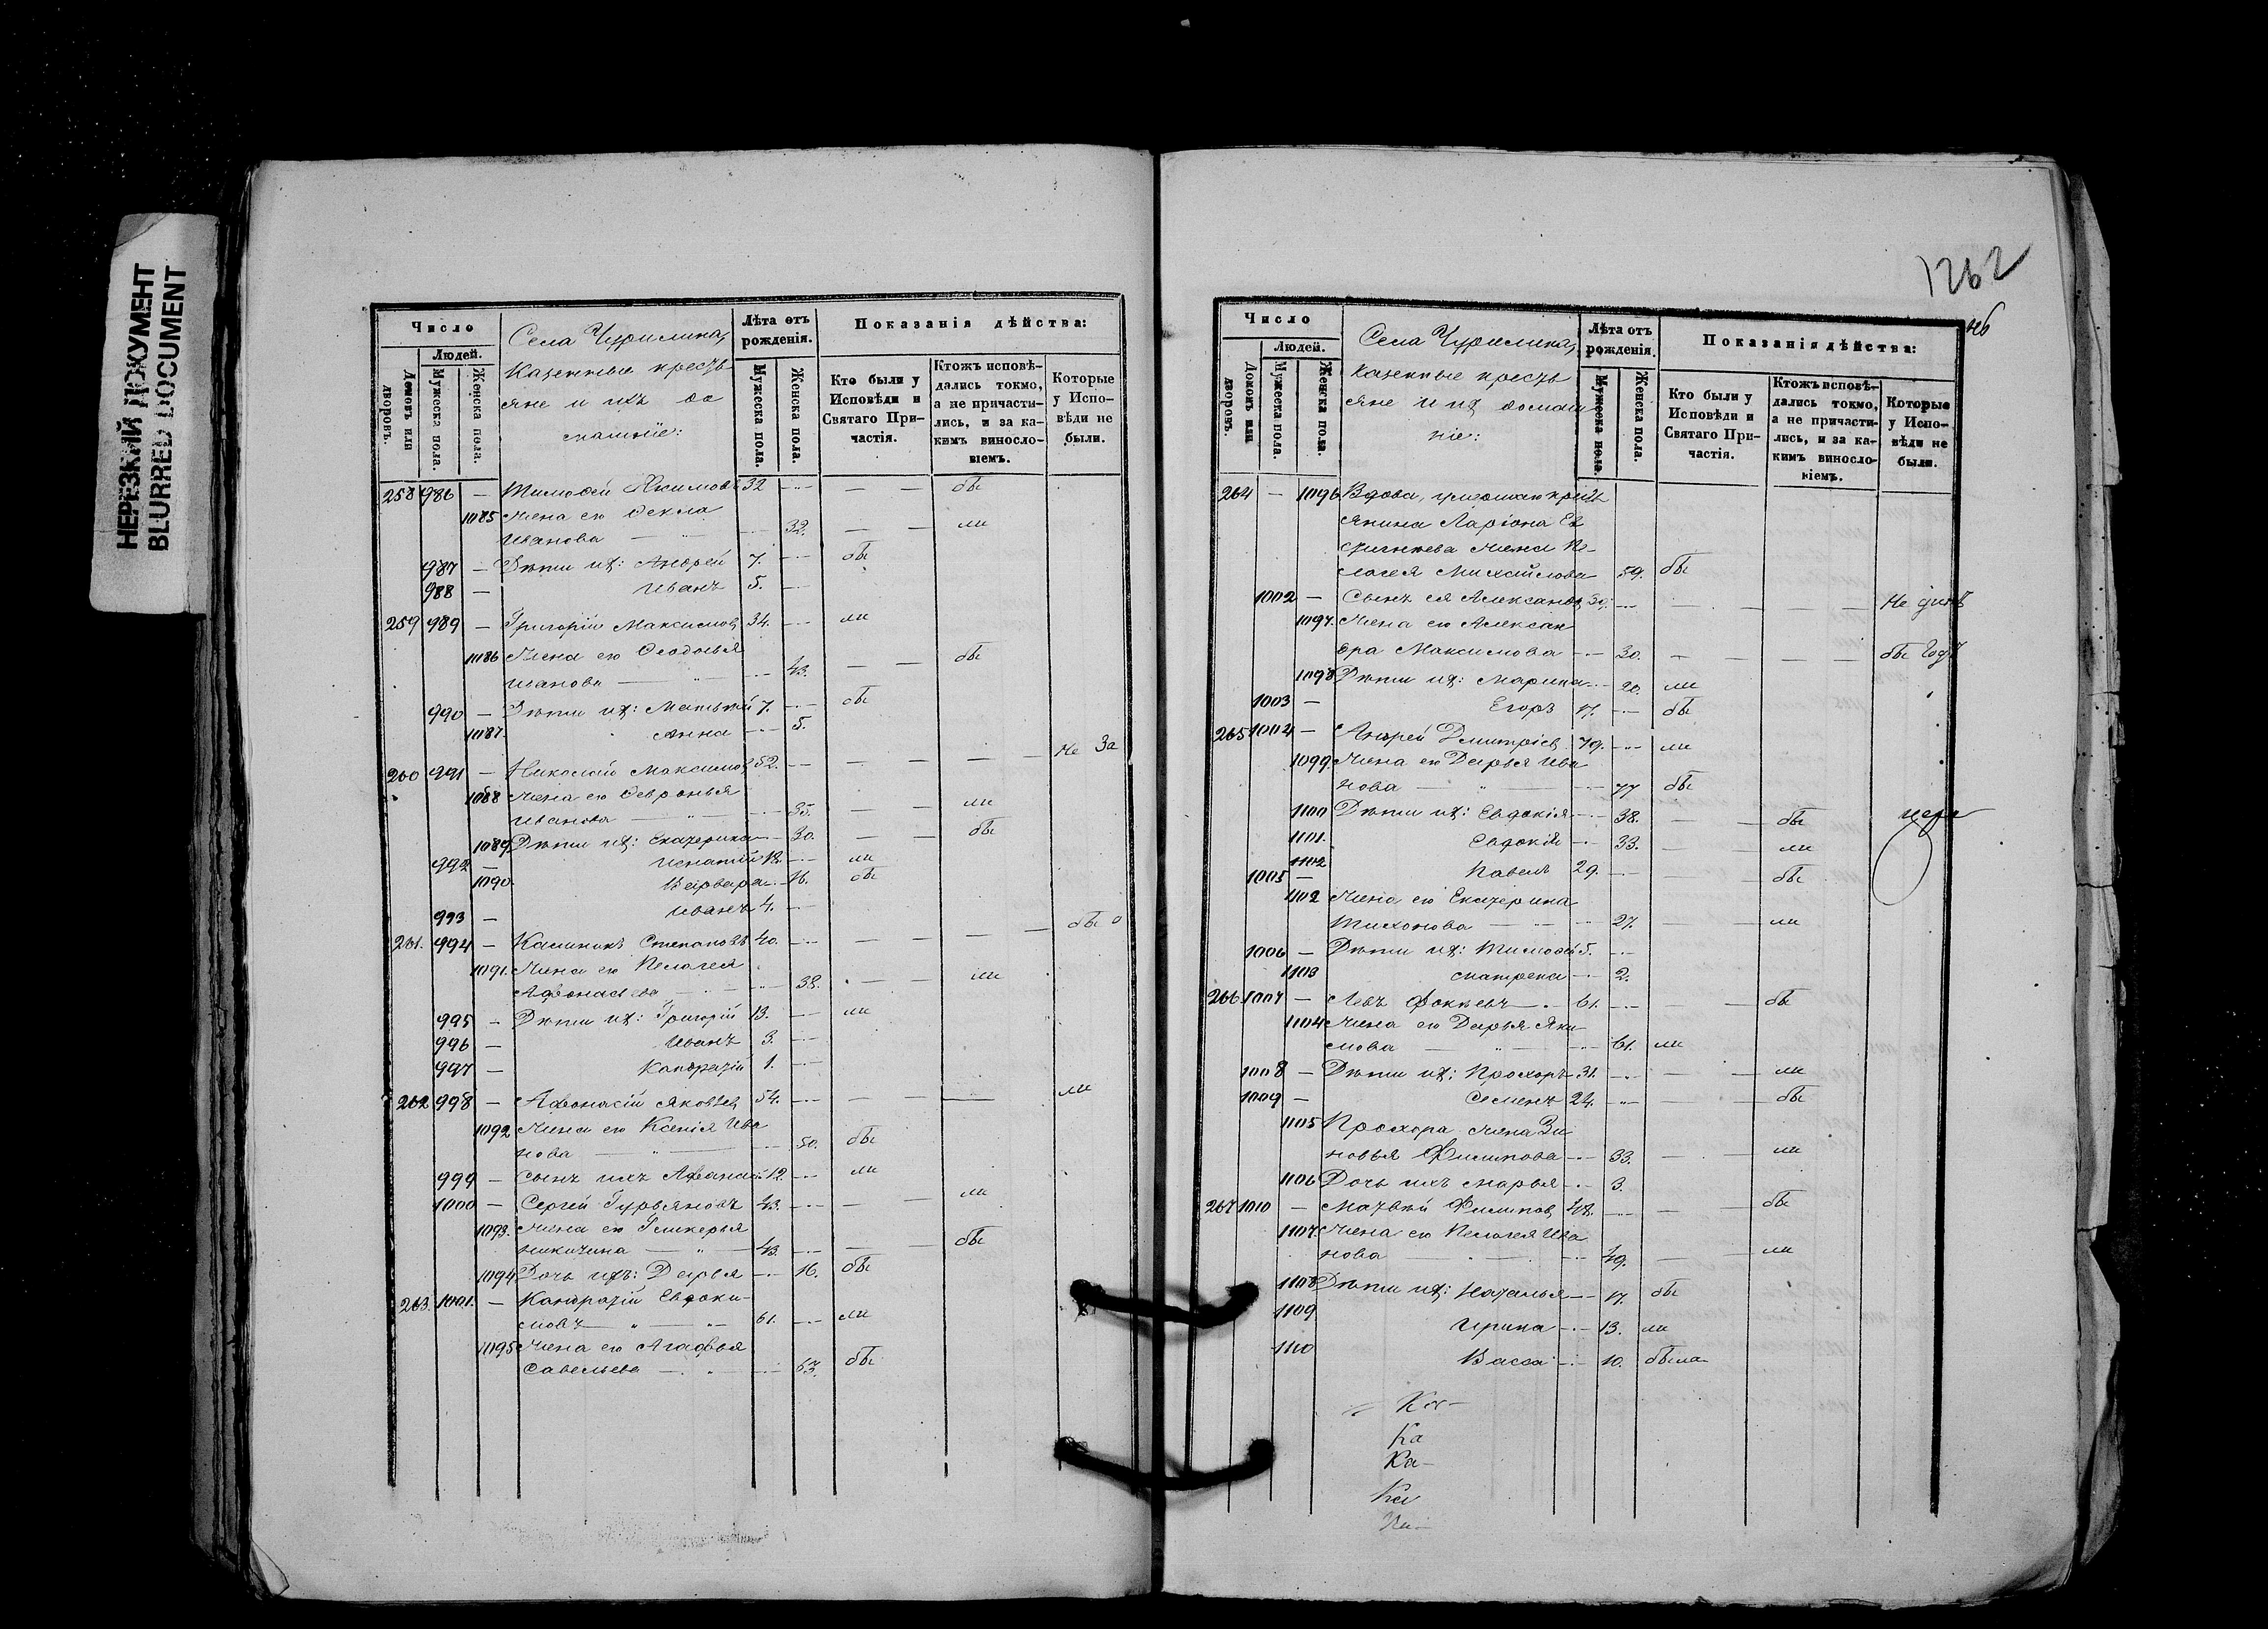 НЕРЕЗКИЙ ДОКУМЕНТ
BLURRED DOCUMENT
Число
Людей.
Домовъ или дворовъ.
Мужеска пола.
Женска пола.
Села Чурилина,
казенные кресть
яне и ихъ до
машніе:
Лѣта отъ рожденія.
Мужеска пола.
Женска пола.
Показанія дѣйства:
Кто были у Исповѣди и Святаго При-частія.
Ктожъ исповѣ-дались токмо, а не причасти-лись, и за ка-кимъ винословіемъ.
Которые у Испо-вѣди не были.
258 986 — Тимофей Якимовъ 32 — — бы
1085 Жена его Фекла
Иванова — 32. — — ли
987 — Дѣти их: Андрей 7. — бы
988 — Иванъ 5. —
259 989 — Григорій Максимов 34. — ли
1086 Жена его Феодосья
Иванова — 43. — — бы
990 — Дѣти их: Матвѣй 7. — бы
1087. Анна — 5.
260 991 — Николай Максимов 52. — — — — Не За
1088 Жена его Февронья
Иванова — 35. — — ли
1089 Дѣти их: Екатерина — 30. — — бы
992 — Игнатій 18. — ли
1090 Варвара — 16. бы
993 — Иванъ 4. —
261. 994 — Калиникъ Степановъ 40. — — — — бы о
1091. Жена его Пелагея
Афонасьева — 38. — — ли
995 — Дѣти их: Григорій 13. — ли
996 — Иванъ 3. —
997 — Кондратій 1. —
262 998 — Афонасій Яковлев 54. — — — — ли
1092 Жена его Ксенія Ива
нова — 50. бы
999 — Сынъ ихъ Афанасій 12. — ли
1000 — Сергей Гурьяновъ 43. — — — ли
1093. Жена его Гликерья
Никитина — 43. — — бы
1094 Дочь ихъ: Дарья — 16. бы
263. 1001. — Кондратій Евдоки-
мовъ — 61. — ли
1095 Жена его Агафья
Савельева — 63. бы
1262
Число
Людей.
Домовъ или дворовъ.
Мужеска пола.
Женска пола.
Села Чурилина,
казенные кресть
яне и их домаш
ніе:
Лѣта отъ рожденія.
Мужеска пола.
Женска пола.
Показанія дѣйства:
Кто были у Исповѣди и Святаго При-частія.
Ктожъ исповѣ-дались токмо, а не причасти-лись, и за ка-кимъ винословіемъ.
Которые у Испо-вѣди не были.
264 — 1096 Вдова, умершаго крест
янина Ларіона Ев
стигнѣева жена Пе-
лагея Михайлова 59. бы
1002 — Сынъ ея Александ 30. — — — —
1097. Жена его Александ
ра Максимова — 30. — — — —
1098 Дѣти их: Марина — 20. ли
1003 — Егоръ 17. — бы
265 1004 — Андрей Дмитріев 79. — ли
1099. Жена его Дарья Ива
нова — 77 бы
1100 Дѣти их: Евдокія — 38. — — бы
1101. Евдокія — 33. — — ли
1005 — Павелъ 29. — — — бы
1102 Жена его Екатерина
Тихонова — 27. — — ли
1006 — Дѣти их: Тимофей 5. —
1103 Матрена — 2.
266 1007 — Левъ Фокѣевъ — 61. — — бы
1104 Жена его Дарья Яки
мова — 61. ли
1008 — Дѣти их: Прохоръ 31. — — — ли
1009 — Семенъ 24. — — — бы
1105 Прохора жена Зи
новья Филипова — 33. — — ли
1106 Дочь ихъ Марья — 3.
267 1010 — Матвѣй Филипов 48. — — — бы
1107. Жена его Пелагея Ива
нова — 49. — ли
1108 Дѣти их: Наталья — 17. бы
1109 Ирина — 13. ли
1110 Васса — 10. была
Ка-
Ка
Ка-
Ка
Ка-